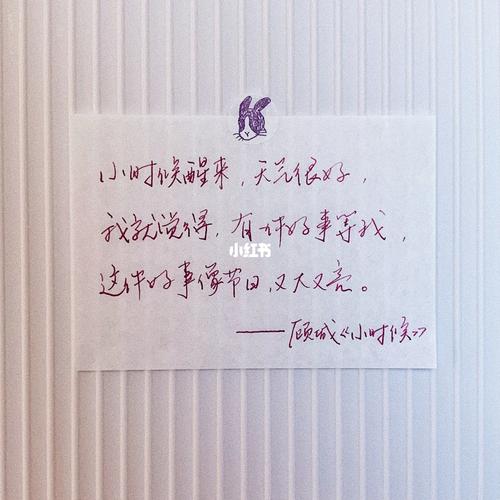 小时候醒来，天气很好，
我就觉得，有一件好事等我，
小红书
这件好事像节日，又大又亮。
——顾城《小时候》